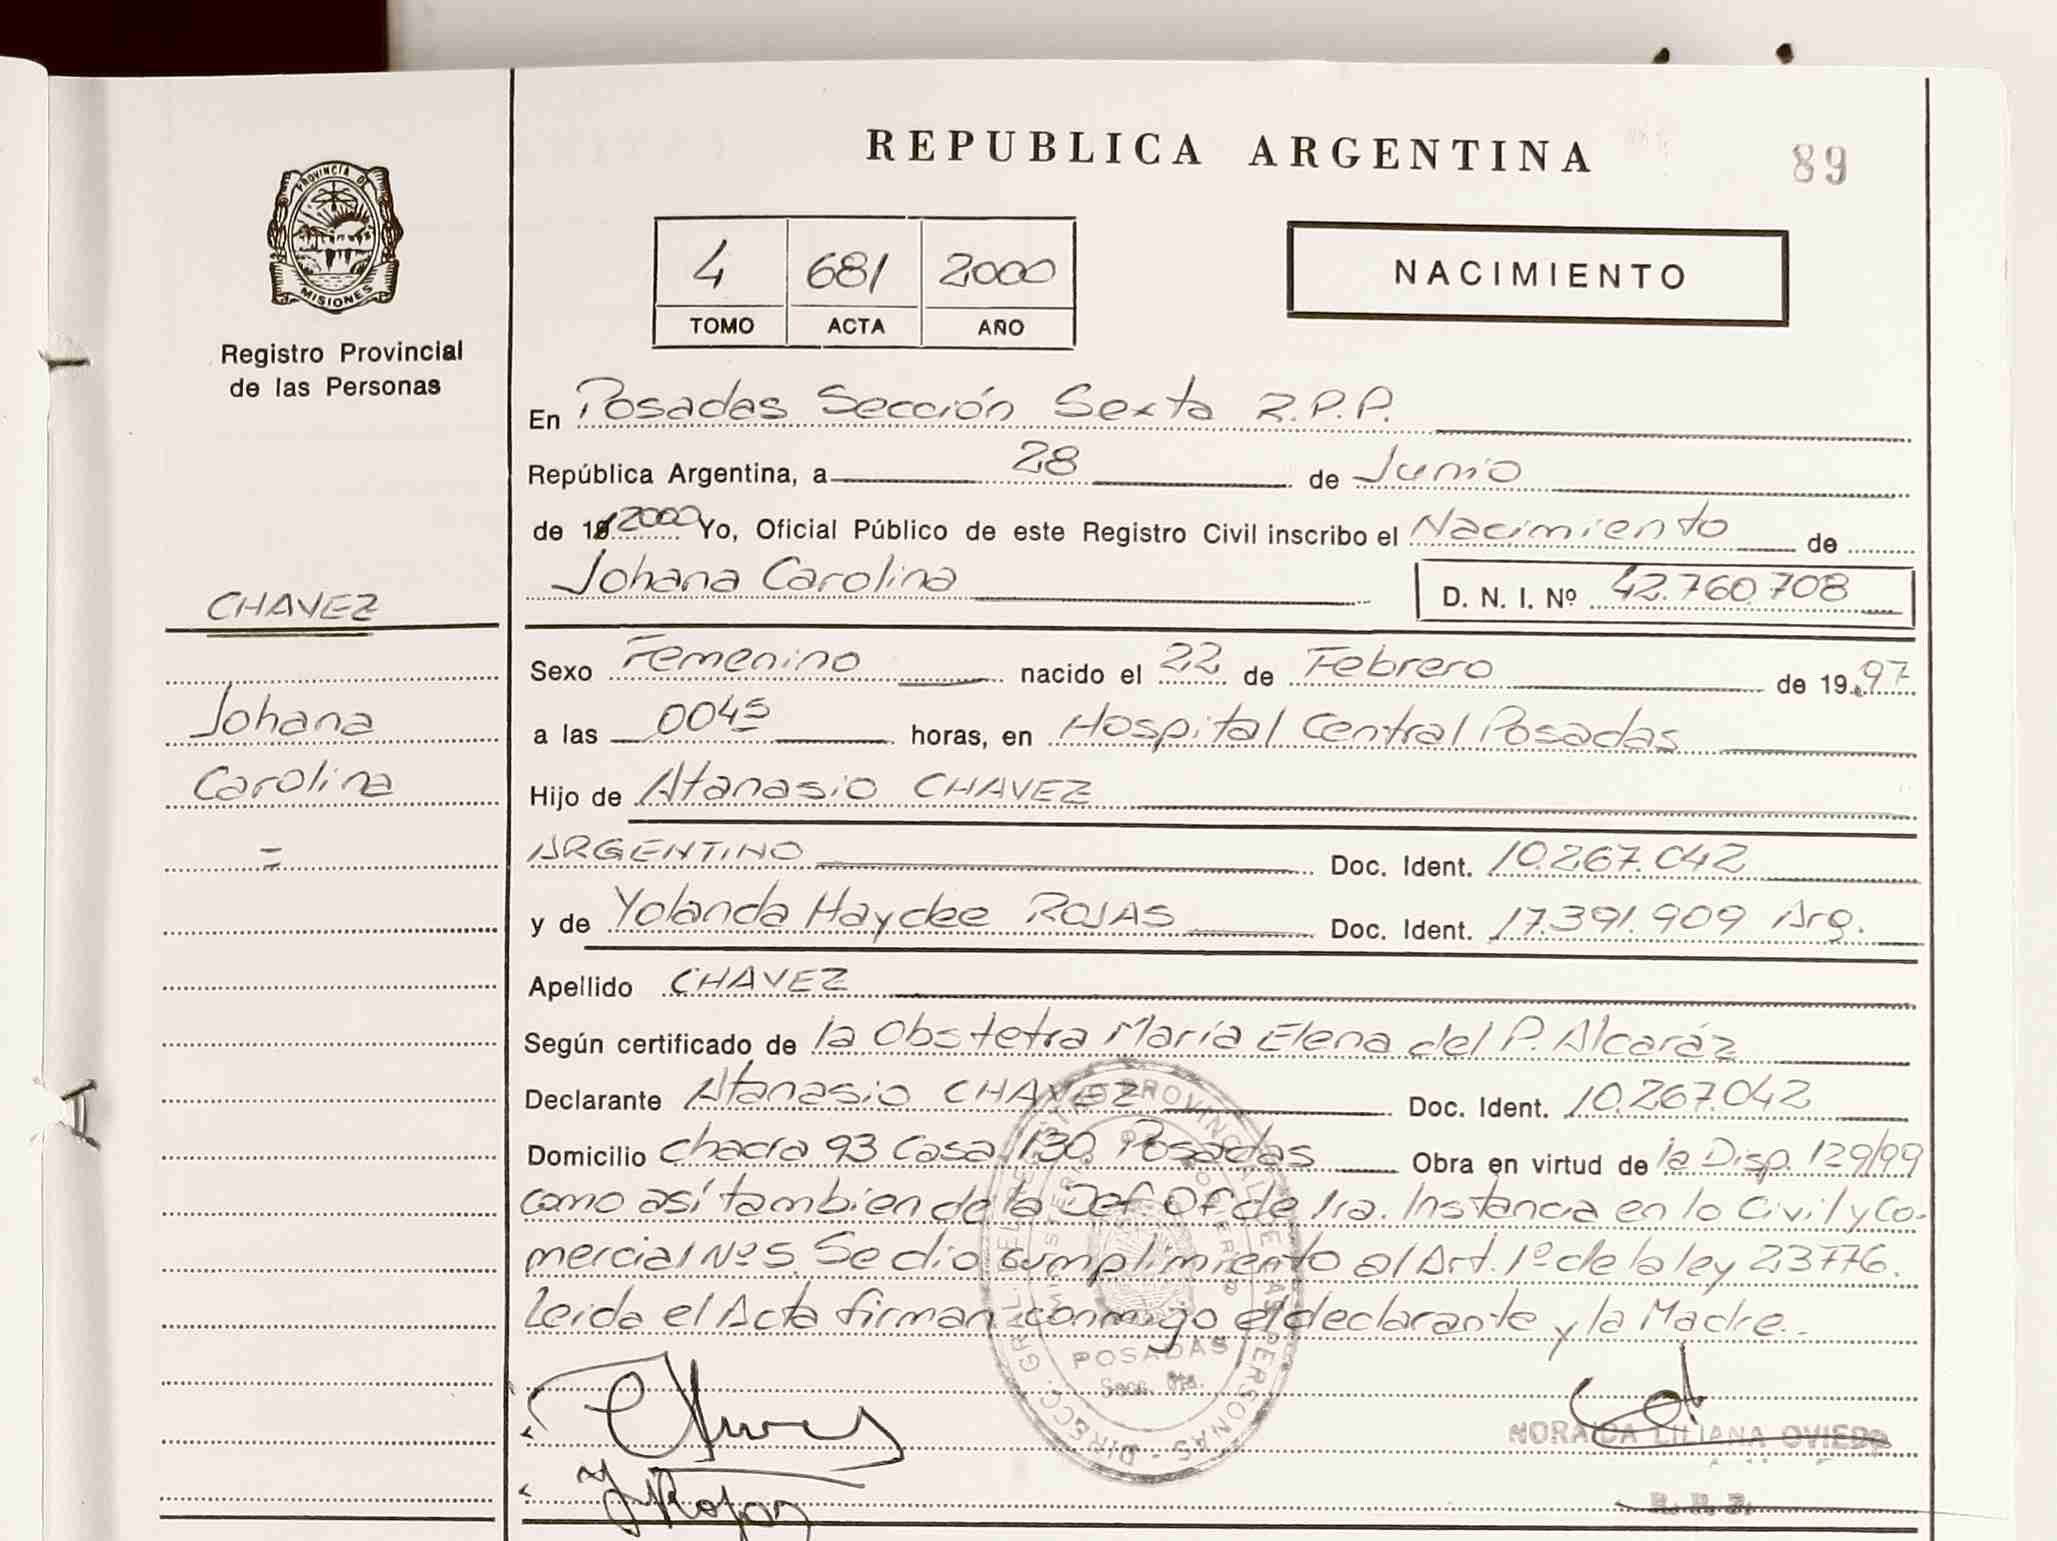 REPUBLICA ARGENTINA
89
PROVINCIA DE
MISIONES
Registro Provincial
de las Personas
4 681 2000
TOMO ACTA AÑO
NACIMIENTO
En Posadas Sección Sexta R.P.P.
República Argentina, a 28 de Junio
de 19 2000 Yo, Oficial Público de este Registro Civil inscribo el Nacimiento de
Johana Carolina D. N. I. Nº 42.760.708
CHAVEZ
Johana
Carolina
=
Sexo Femenino nacido el 22 de Febrero de 19 97
a las 0045 horas, en Hospital Central Posadas
Hijo de Atanasio CHAVEZ
ARGENTINO Doc. Ident. 10.267.042
y de Yolanda Haydee ROJAS Doc. Ident. 17.391.909 Arg.
Apellido CHAVEZ
Según certificado de la Obstetra María Elena del P. Alcaráz
Declarante Atanasio CHAVEZ Doc. Ident. 10.267.042
Domicilio Chacra 93 Casa 130 Posadas Obra en virtud de la Disp. 129/99
como así tambien de la Def Of de 1ra. Instancia en lo Civil y Co-
mercial Nº 5. Se dio cumplimiento al Art. 1º de la ley 23776.
Leida el Acta firman conmigo el declarante y la Madre.
DIRECC. GRAL. DEL REGISTRO PROVINCIAL DE LAS PERSONAS
MINISTERIO DE GOBIERNO
POSADAS
Secc. 6ta.
NORAIDA LILIANA OVIEDO
Y Rojas